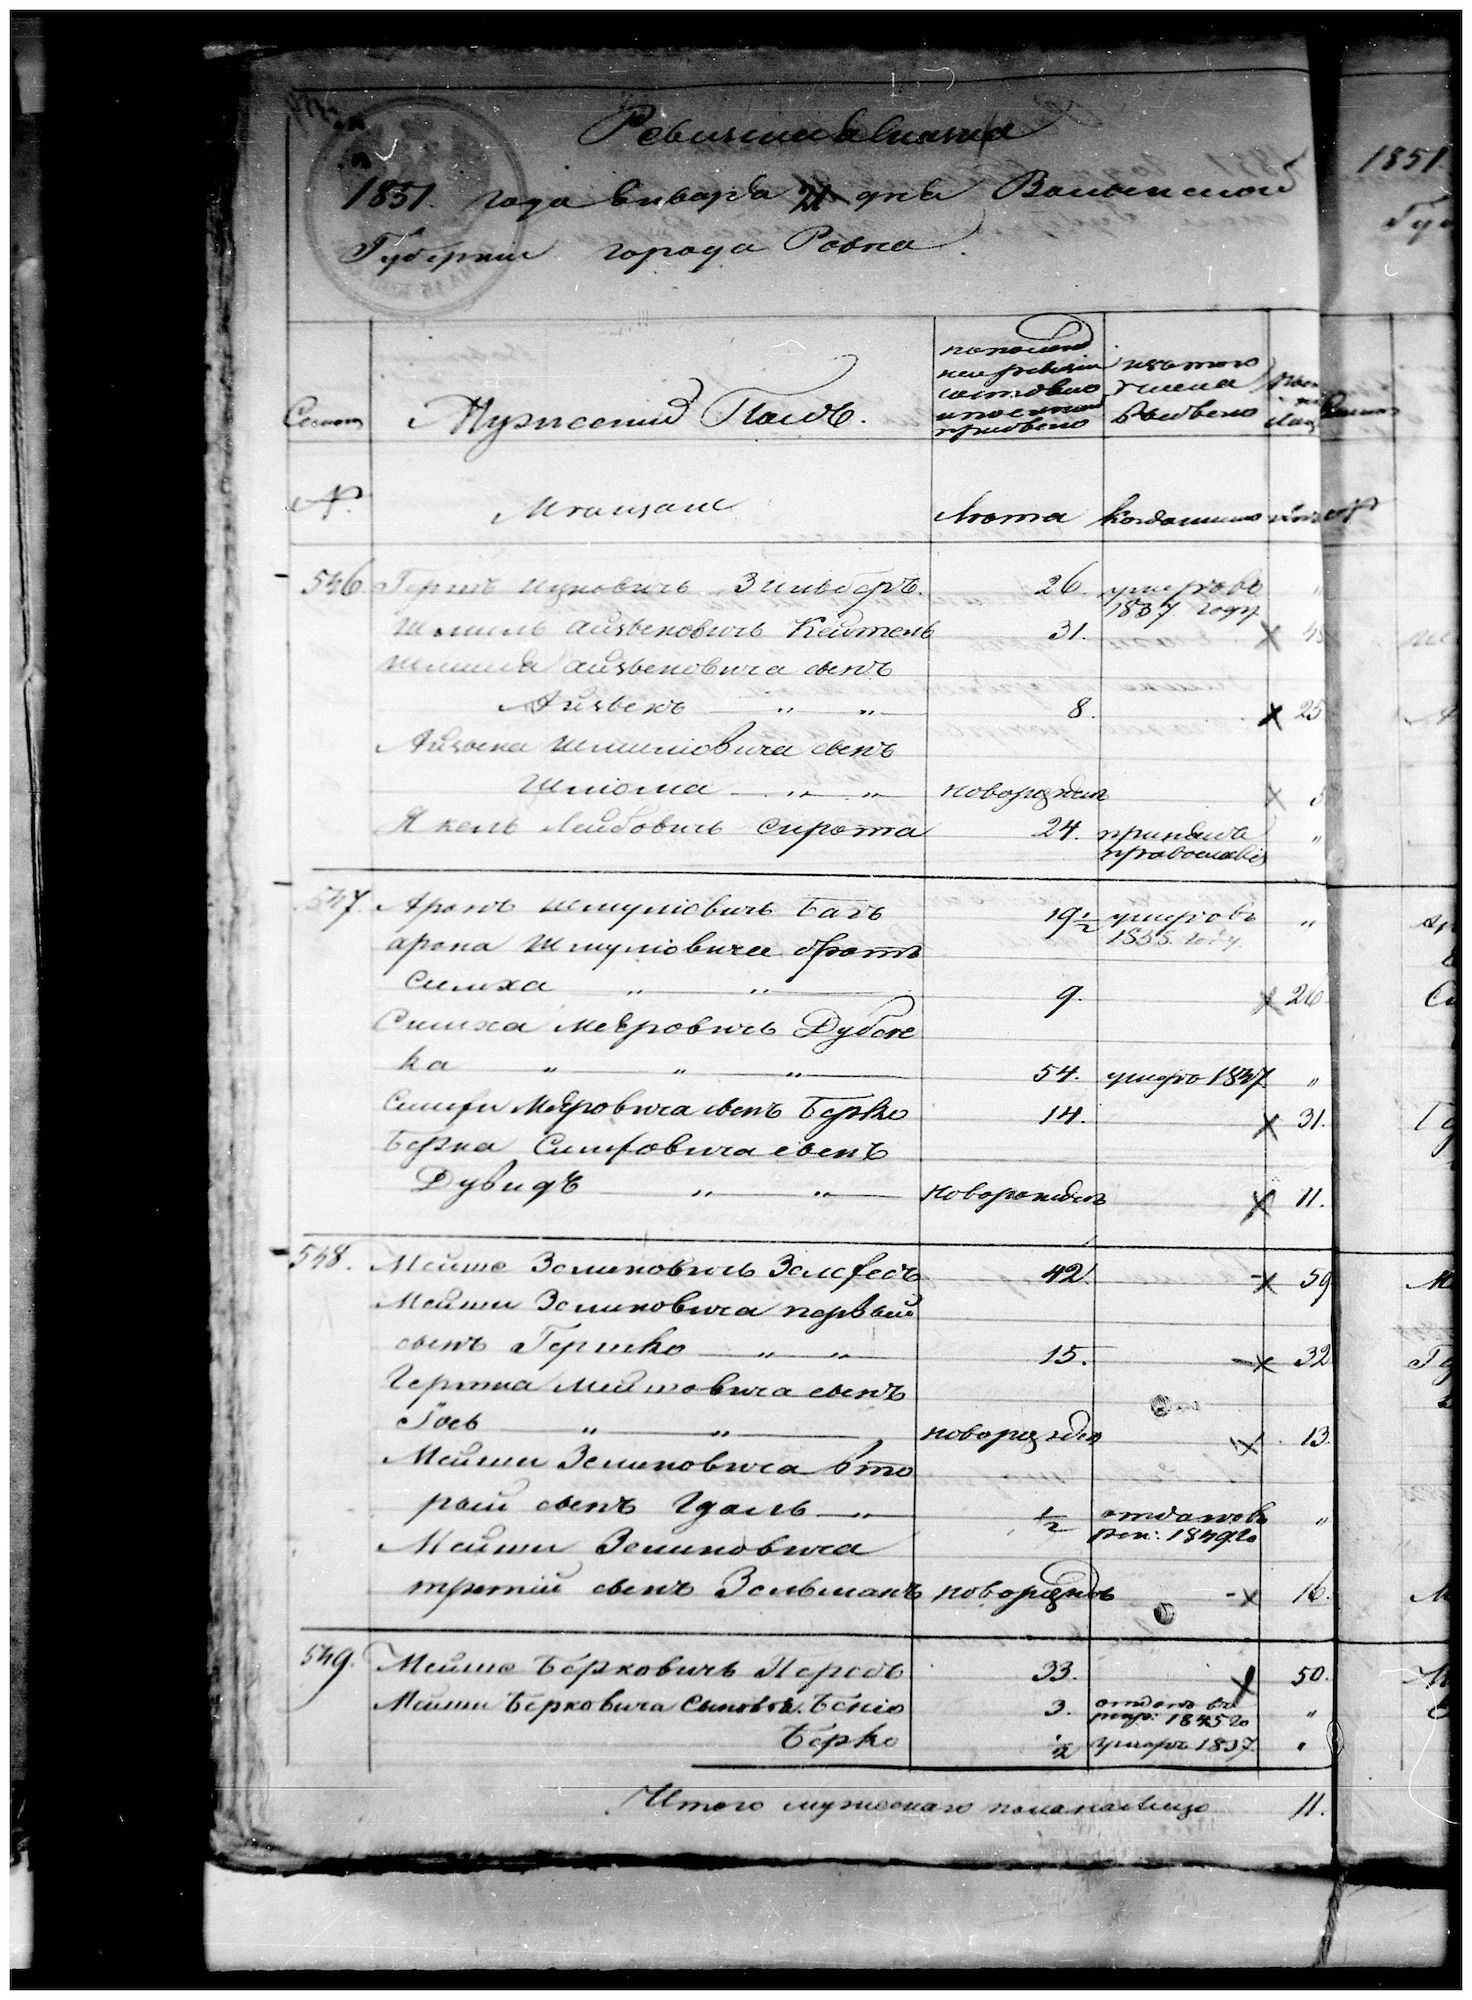 Ревизская Сказка
1851. года Января 21 дня Волынской
Губерніи города Ровна
1851.
Мужескій Полъ.
по послед
ней ревизіи
состояло
и после того
прибыло
изъ того
числа
выбыло
№
Мещане
Лета
Когда именно
546 Гершъ Ицковичъ Зильберъ. 26. умеръ въ
1837 году
Шлиомъ Айзыковичъ Кейтель 31. 4
Шлиома Айзыковича сынъ
Айзыкъ " " 8. 25
Айзыка Шлиомовича сынъ
Шлиома " " новорожден 5
Янкель Лейбовичъ Сирота 24. принялъ "
православіе
547. Аронъ Шмулiовичъ Батъ 19½ умеръ въ "
1835. году.
Арона Шмулiовича братъ
Симха " " 9. 26
Симха Меєровичъ Дубен
ка " " " 54. умеръ 1847 "
Симхи Меєровича сынъ Берко 14. 31.
Берка Симховича сынъ
Дувидъ " " новорожден 11.
548. Мейше Зеликовичъ 42 59
Мейши Зеликовича первый
сынъ Гершко " " 15. 32
Гершка Мейшовича сынъ
Іось " " новорожден 13.
Мейши Зеликовича вто
рый сынъ Идаль " ½ отданъ въ "
рек: 1849го
Мейши Зеликовича
третій сынъ Зельманъ новорожден 16.
549. Мейше Берковичъ Персъ 33. 50.
Мейши Берковича Сыновья. Бенiо 3. отданъ въ "
рекр: 1845го
Берко ½ умеръ 1837. "
Итого мужескаго пола налицо 11.